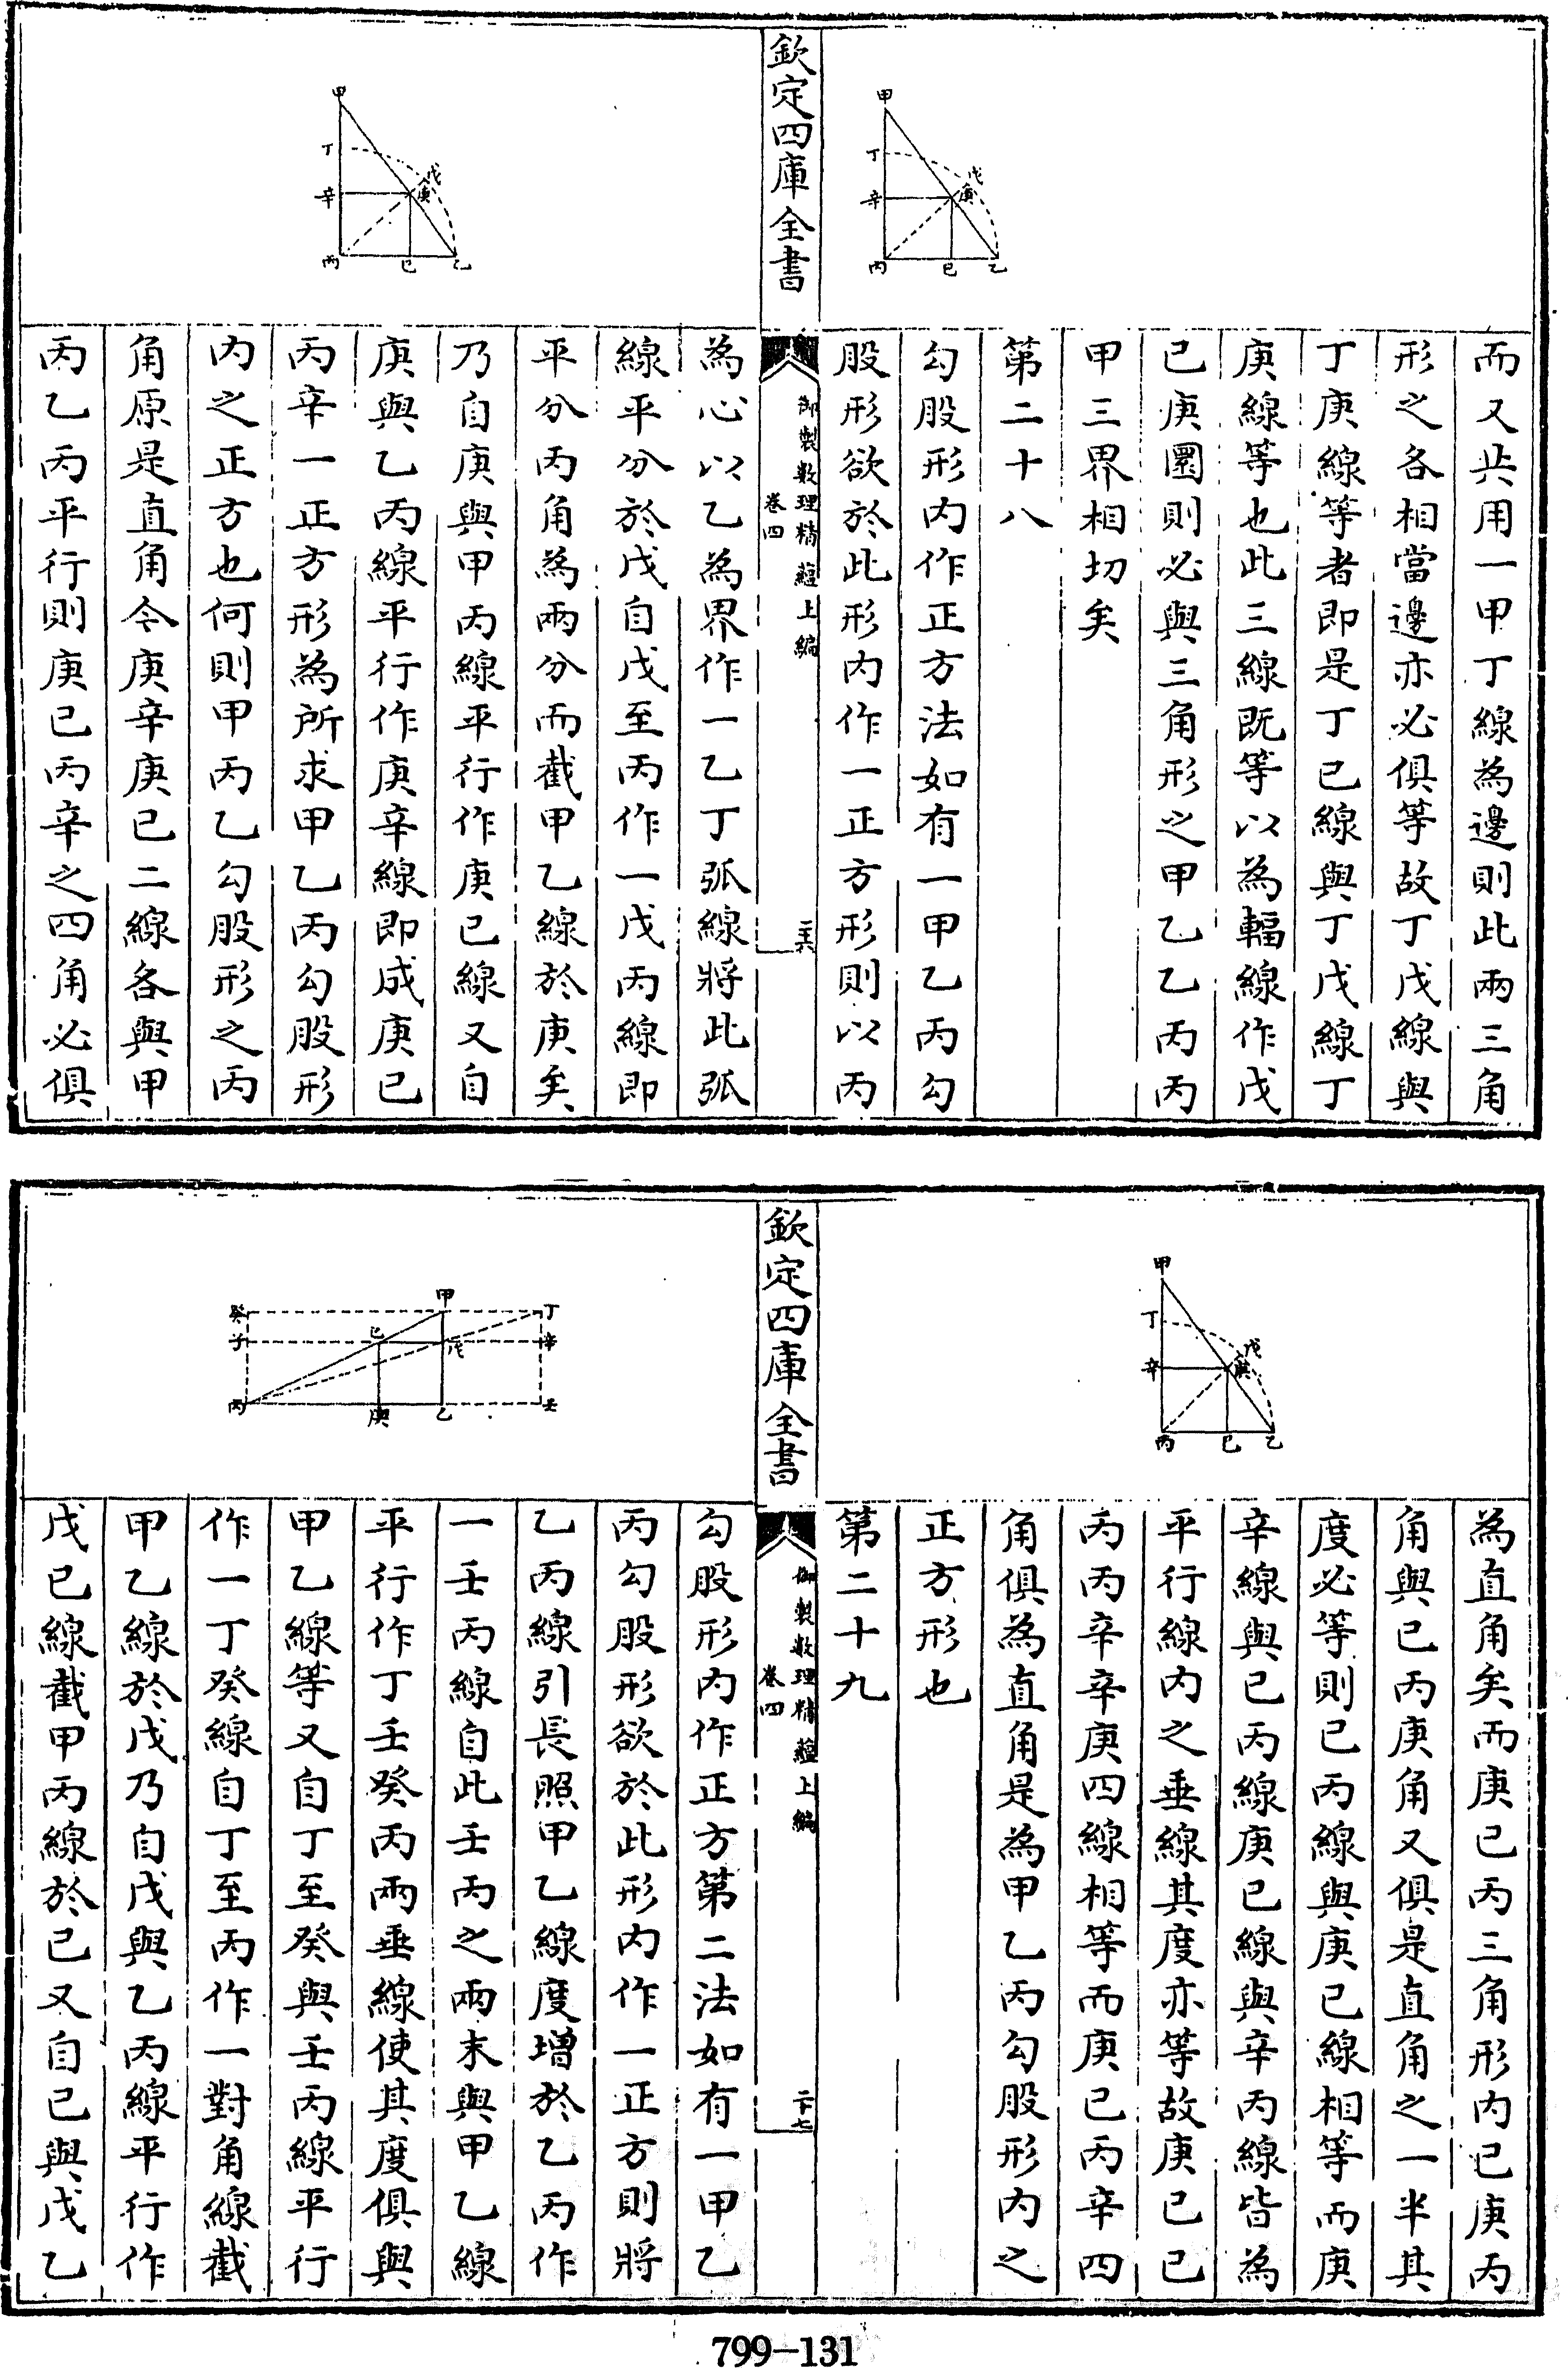 而又共用一甲丁線為邊則此兩三角
形之各相當邊亦必俱等故丁戊線與
丁庚線等者即是丁已線與丁戊線丁
庚線等也此三線既等以為輻線作戊
已庚圜則必與三角形之甲乙乙丙丙
甲三界相切矣
第二十八
勾股形內作正方法如有一甲乙丙勾
股形欲於此形内作一正方形則以丙
甲
丁
戊
庚
辛
丙
已
乙
欽定四庫全書
御製數理精蘊上編
卷四
二十六
為心以乙為界作一乙丁弧線將此弧
線平分於戊自戊至丙作一戊丙線即
平分丙角為兩分而截甲乙線於庚矣
乃自庚與甲丙線平行作庚已線又自
庚與乙丙線平行作庚辛線即成庚已
丙辛一正方形為所求甲乙丙勾股形
内之正方也何則甲丙乙勾股形之丙
角原是直角令庚辛庚已二線各與甲
丙乙丙平行則庚已丙辛之四角必俱
甲
丁
戊
庚
辛
丙
已
乙
為直角矣而庚已丙三角形内已庚丙
角與已丙庚角又俱是直角之一半其
度必等則已丙線與庚已線相等而庚
辛線與已丙線庚已線與辛丙線皆為
平行線内之垂線其度亦等故庚已已
丙丙辛辛庚四線相等而庚已丙辛四
角俱為直角是為甲乙丙勾股形内之
正方形也
第二十九
甲
丁
戊
庚
辛
丙
已
乙
欽定四庫全書
御製數理精蘊上編
卷四
二十七
勾股形内作正方第二法如有一甲乙
丙勾股形欲於此形内作一正方則將
乙丙線引長照甲乙線度增於乙丙作
一壬丙線自此壬丙之兩末與甲乙線
平行作丁壬癸丙兩垂線使其度俱與
甲乙線等又自丁至癸與壬丙線平行
作一丁癸線自丁至丙作一對角線截
甲乙線於戊乃自戊與乙丙線平行作
戊已線截甲丙線於已又自已與戊乙
癸
甲
丁
子
已
戊
辛
丙
庚
乙
壬
799-131